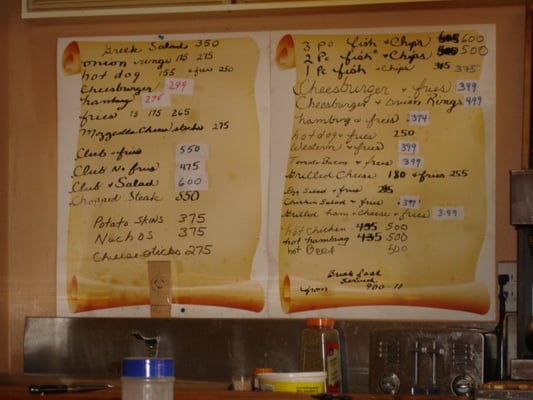 Greek Salad 350
onion rings 175 275
hot dog 155 + fries 250
Cheesburger 299
hamburg 275
fries 75 175 265
Mozzedla Cheese sticks 275
Club + fries 550
Club No fries 475
Club + Salad 600
Chopped Steak 550
Potato Skins 375
Nachos 375
Cheese sticks 275
3 Pc fish + Chips 600
2 Pc fish + Chips 500
1 Pc fish + Chips 375
Cheesburger + fries 399
Cheesburger + onion Rings 499
hamburg + fries 374
hot dog + fries 250
Western + fries 399
Tomato Bacon + fries 399
Grilled Cheese 180 + fries 255
Egg Salad + fries
Chicken Salad + fries 399
Grilled ham + Cheese + fries 399
hot Chicken 500
hot hamburg 500
hot Beef 500
Break fast
Served
from 900-11